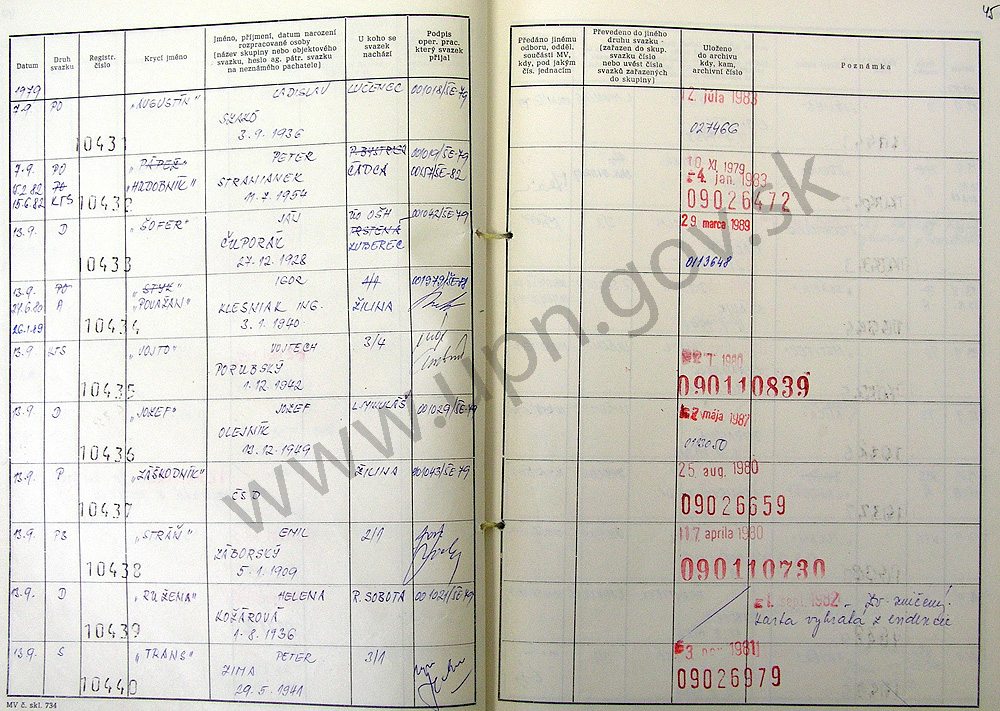 45
Datum
Druh svazku
Registr. číslo
Krycí jméno
Jméno, příjmení, datum narození
rozpracované osoby
(název skupiny nebo objektového
svazku, heslo ag. pátr. svazku
na neznámého pachatele)
U koho se
svazek
nachází
Podpis
oper. prac.
který svazek
přijal
Předáno jinému
odboru, odděl.
součásti MV,
kdy, pod jakým
čís. jednacím
Převedeno do jiného
druhu svazku -
(zařazen do skup.
svazku číslo
nebo uvést čísla
svazků zařazených
do skupiny)
Uloženo
do archivu
kdy, kam,
archivní číslo
Poznámka
1979
7.9. PO 10431 "AUGUSTÍN" LADISLAV
3.9.1936
LUČENEC 001018/ŠE-79
12. júla 1983
027466
7.9. PO 10432 PETER
15.6.82 KTS "HRDOBNÍK" STRANIANEK
11.7.1954
ČADCA 001019/ŠE-79
10. XI. 1979
-4. jan. 1983
09026472
13.9. D 10433 "ŠOFER" JÁN
ČUPORÁK
27.12.1928
ZUBEREC 001042/ŠE-79
29. marca 1989
0113648
13.9. PO 10434 IGOR
A "POVAŽAN" KLESNIAK ING.
3.1.1940
ŽILINA
26.1.89
13.9 KTS 10435 "VOJTO" VOJTECH
PORUBSKÝ
1.12.1942
3/4
1980
090110839
13.9 D 10436 "JOZEF" JOZEF
OLEJNÍK
13.12.1949
L.MIKULÁŠ 001029/ŠE-79
mája 1987
13.9. P 10437 "ZÁŠKODNÍK"
ČSD
ŽILINA 001043/ŠE-79
25. aug. 1980
09026659
13.9. 10438 "STRÁŽ" EMIL
ZÁBORSKÝ
5.1.1909
2/1
17 apríla 1980
090110730
13.9. D 10439 "RUŽENA" HELENA
KOŽÁROVÁ
1.8.1936
R. SOBOTA 001021/ŠE-79
sept. 1982 - Zv. zničený.
karta vybratá z evidencie
13.9. S 10440 "TRANS" PETER
ZIMA
29.5.1941
3/1
3. nov. 1981
09026979
MV č. skl. 734
www.upn.gov.sk